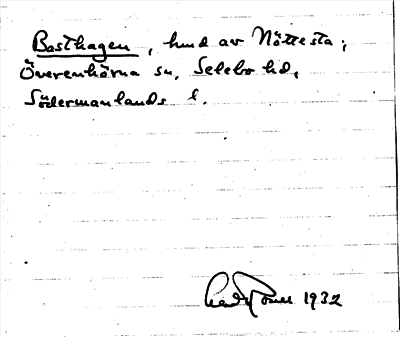 Basthagen, hmd av Nöttesta,
Överenhörna sn, Selebo hd,
Södermanlands l.
1932